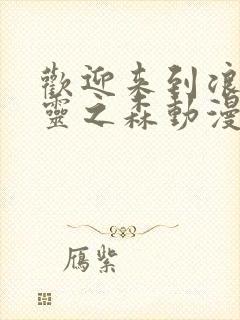 歡迎来到浪
靈之森動漫
鴈紫